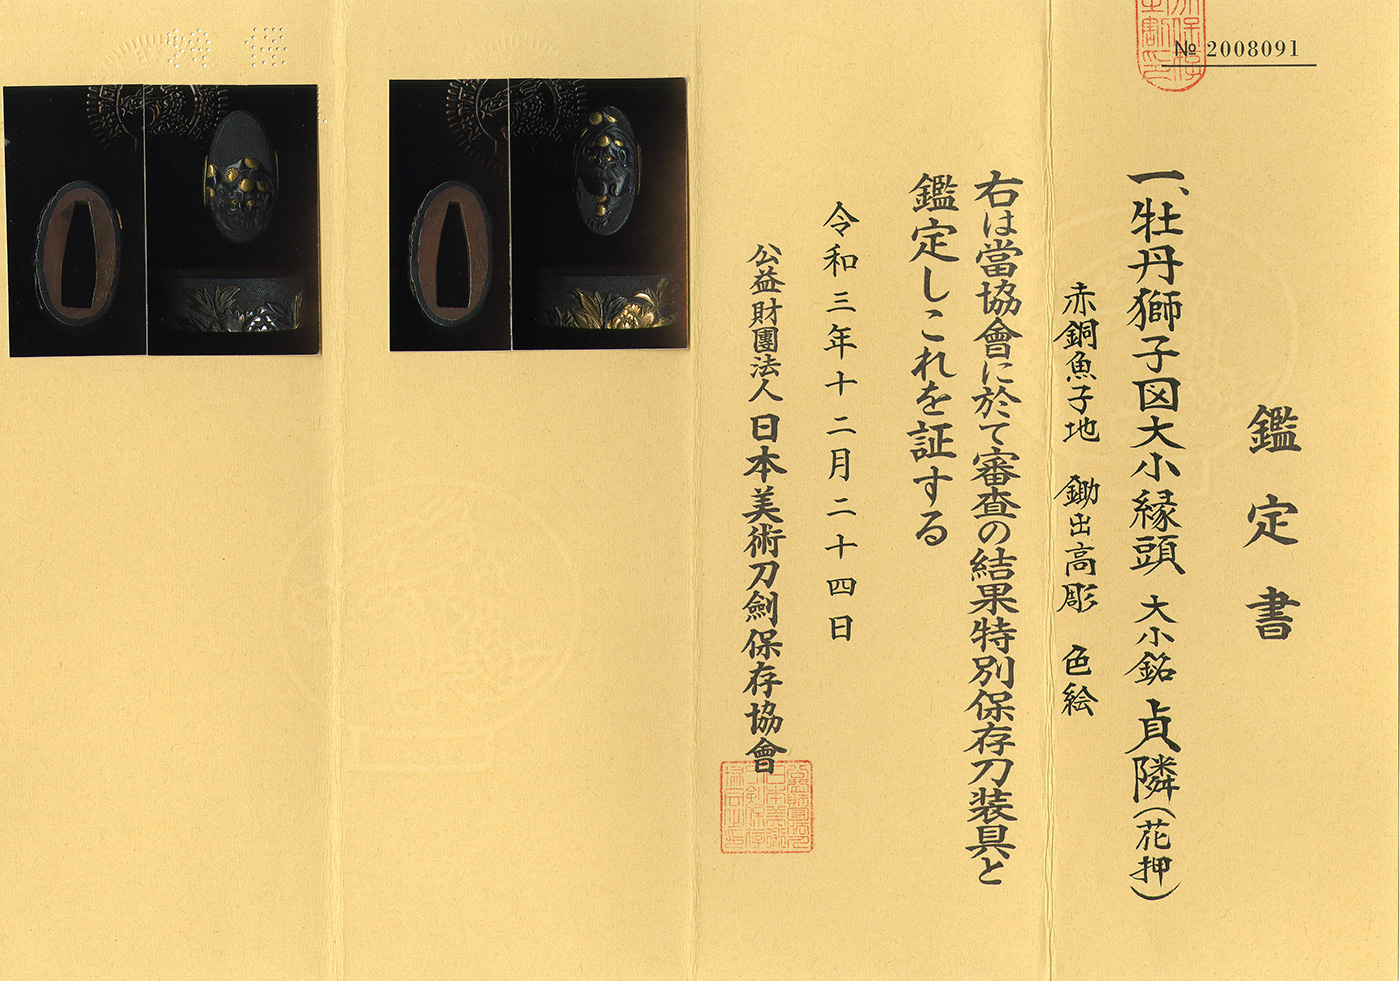 № 2008091
鑑定書
一、牡丹獅子図大小縁頭 大小銘 貞隣(花押)
赤銅魚子地 鋤出高彫 色絵
右は當協會に於て審査の結果特別保存刀装具と
鑑定しこれを証する
令和三年十二月二十四日
公益財團法人 日本美術刀劍保存協會